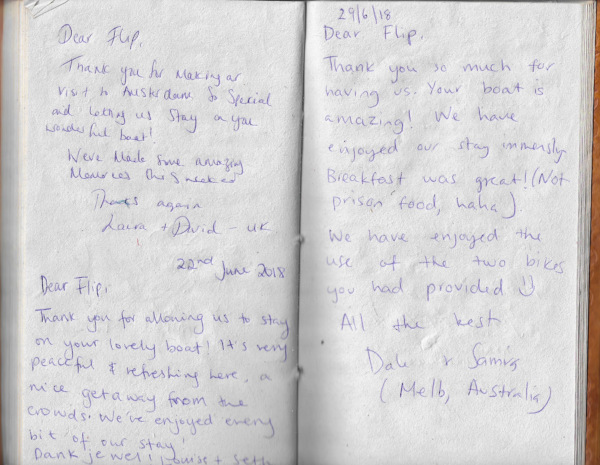 Dear Flip,
Thank you for making our
visit to Amsterdam So Special
and letting us stay on your
wonderful boat!
We've Made Some amazing
Memories this weekend
Thanks again
Laura + David - UK
22nd June 2018
Dear Flip,
Thank you for allowing us to stay
on your lovely boat! It's very
peaceful & refreshing here, a
nice getaway from the
crowds. We've enjoyed every
bit of our stay!
Dank je wel! Louise + Seth
29/6/18
Dear Flip,
Thank you so much for
having us. Your boat is
amazing! We have
enjoyed our stay immensly
Breakfast was great! (Not
prison food, haha).
We have enjoyed the
use of the two bikes
you had provided ☺
All the best
(Melb, Australia)